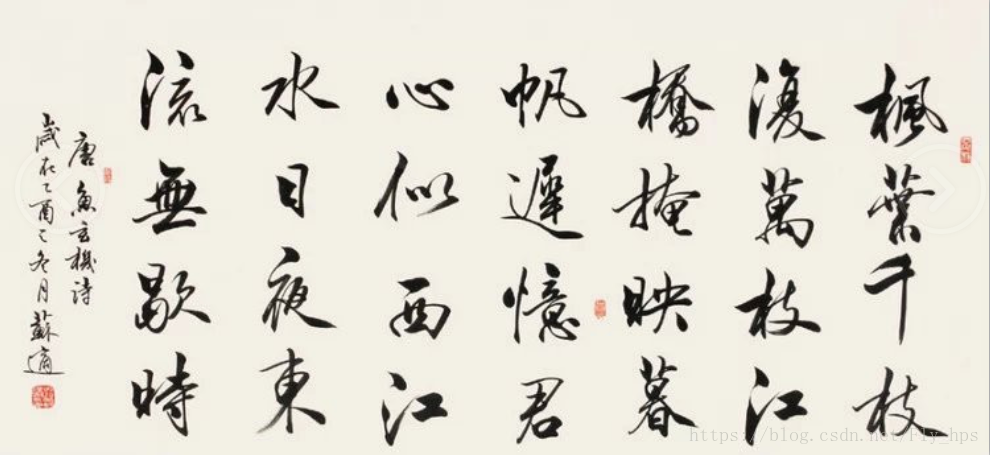 楓葉千枝
復萬枝江
橋掩映暮
帆遲憶君
心似西江
水日夜東
流無歇時
唐魚玄機詩
歲在乙酉之冬月蘇適
https://blog.csdn.net/Fly_hps